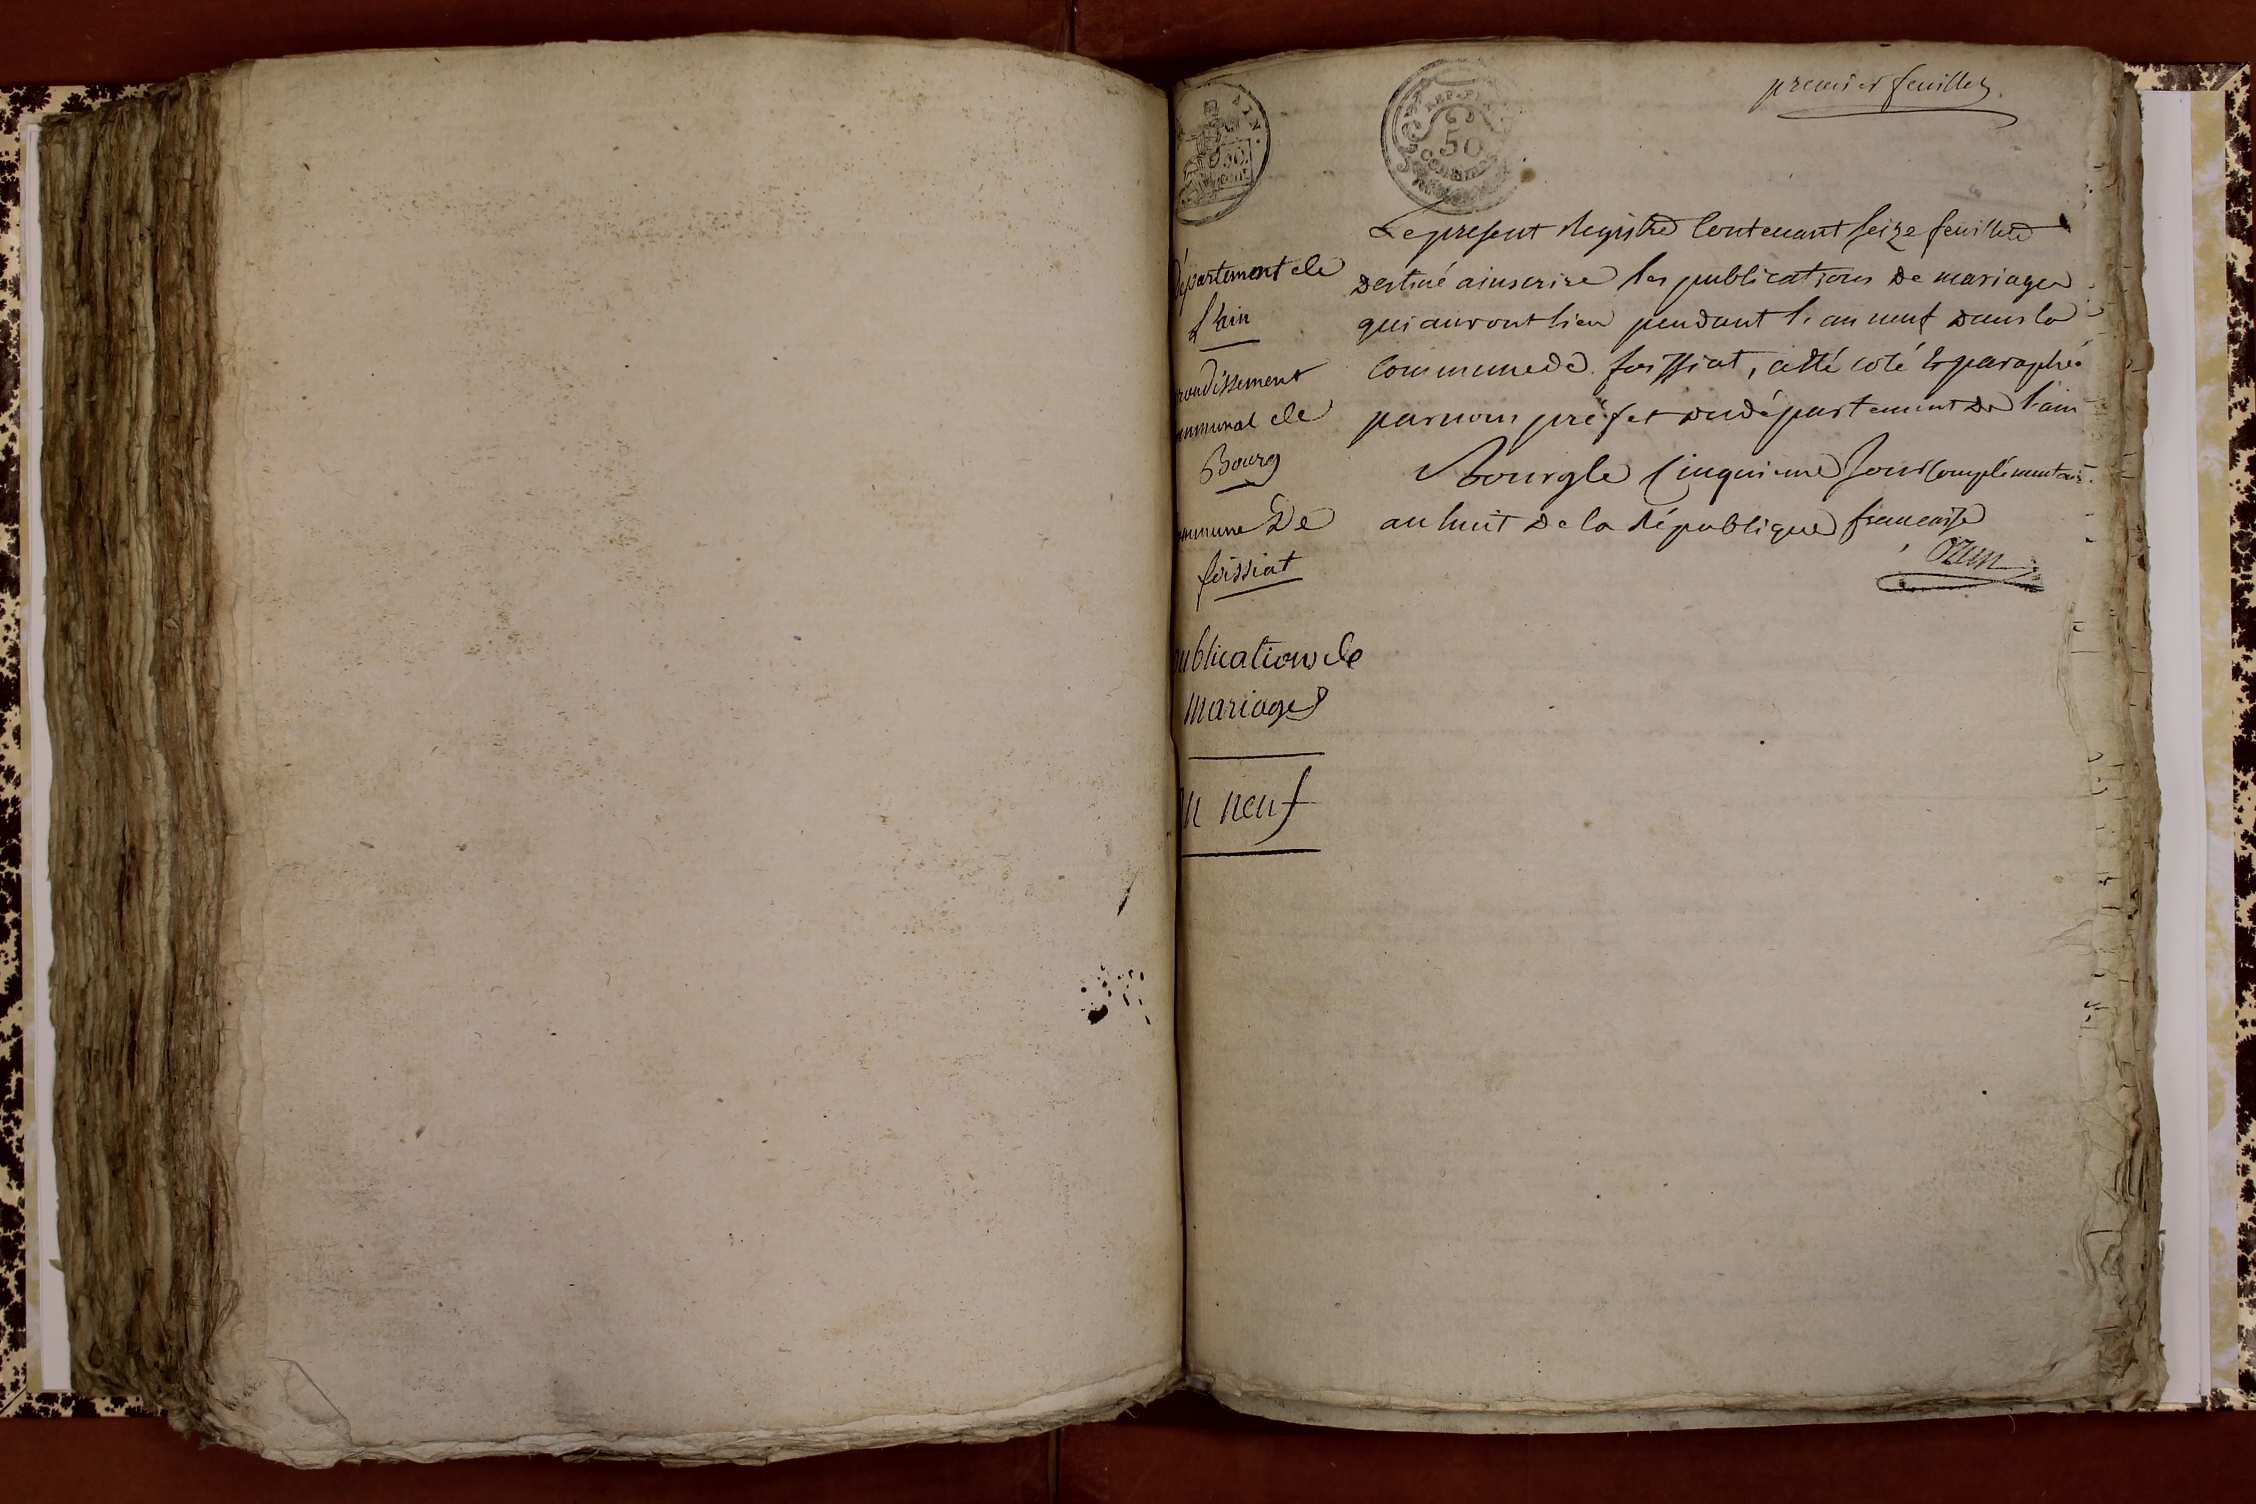 premier feuillet
REP. FRA
50
Centimes
50
cent
département de
l'ain
rondissement
mmunal de
Bourg
mmune De
foissiat
publication de
mariages
an neuf
Le present Registre Contenant Seize feuillets
destiné a inscrire les publications de mariages
qui auront lieu pendant l'an neuf dans la
Commune de foissiat, a été coté & paraphé
par nous préfet du département de l'ain
a Bourg le Cinquieme Jour Complémentaire
an huit de la République francaise
Ozun